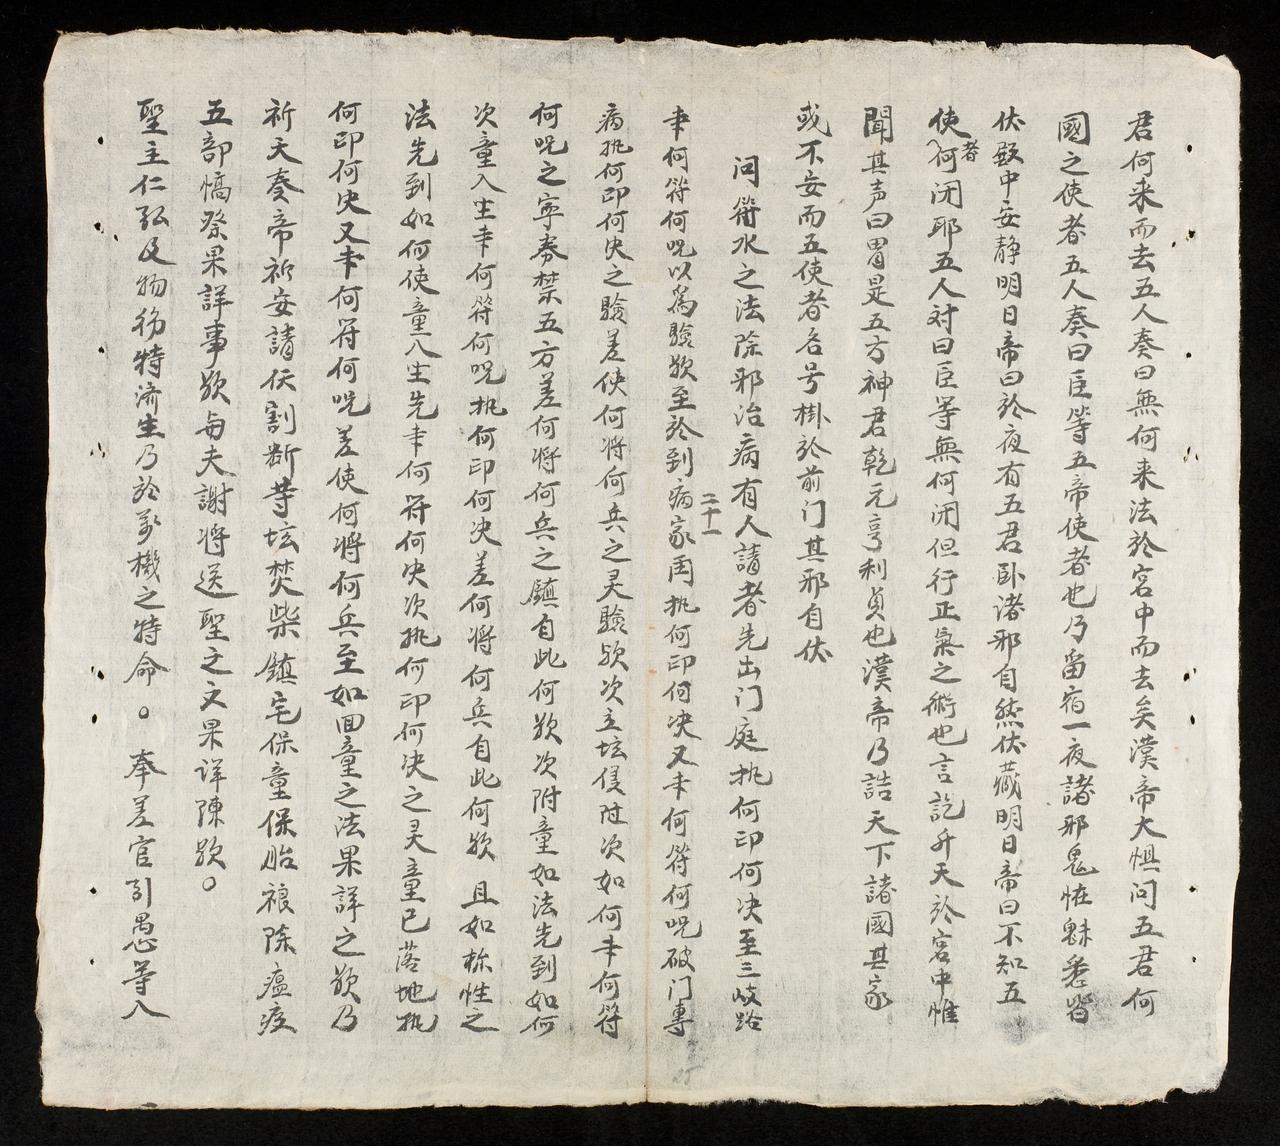 君何来而去五人奏曰無何来法於宮中而去矣漢帝大惧问五君何
國之使者五人奏曰臣等五帝使者也乃畄宿一夜諸邪鬼怪魅悉皆
伏殿中安静明日帝曰於夜有五君卧诸邪自然伏藏明日帝曰不知五
使者何闭耶五人対曰臣等無何闭但行正氣之術也言訖升天於宮中惟
聞其声曰冒是五方神君乾元亨利貞也漢帝乃誥天下諸國其家
或不安而五使者各号掛於前门其邪自伏
问符水之法除邪治病有人請者先出门庭执何印何决至三岐路
聿何符何呪以為驗欤至於到病家用执何印何决又聿何符何呪破门專
二十一
病执何印何决之驗差使何将何兵之灵驗欤次立坛侵附次如何聿何符
何呪之寧券禁五方差何将何兵之鎮自此何欤次附童如法先到如何
次童入生聿何符何呪执何印何决差何将何兵自此何欤且如栋性之
法先到如何使童入生先聿何符何决次执何印何决之灵童已落地执
何印何决又聿何符何呪差使何将何兵至如回童之法果詳之欤乃
祈天奏帝祈安請伏割断等坛焚柴鎮宅保童保胎禳除瘟疫
五部犒祭果詳事欤每夫謝将送聖之文果详陳欤。
聖主仁弘及物务特济生乃於萬機之特命。奉差官引愚等入